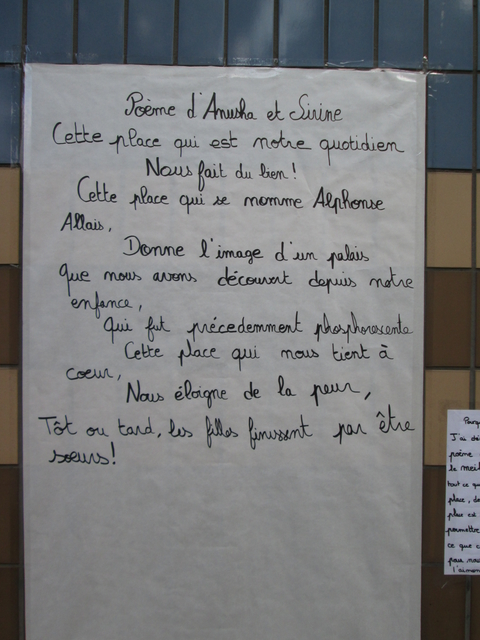 Poème d'Anusha et Sirine
Cette place qui est notre quotidien
Nous fait du bien!
Cette place qui se nomme Alphonse
Allais,
Donne l'image d'un palais
Que nous avons découvert depuis notre
enfance,
Qui fut précedemment phosphorescente
Cette place qui nous tient à
coeur,
Nous éloigne de la peur,
Tôt ou tard, les filles finissent par être
soeurs!
J'ai dé
poème
le meil
tout ce qu
place, de
plus est
permettre
ce que c
pour nou
l'aimon